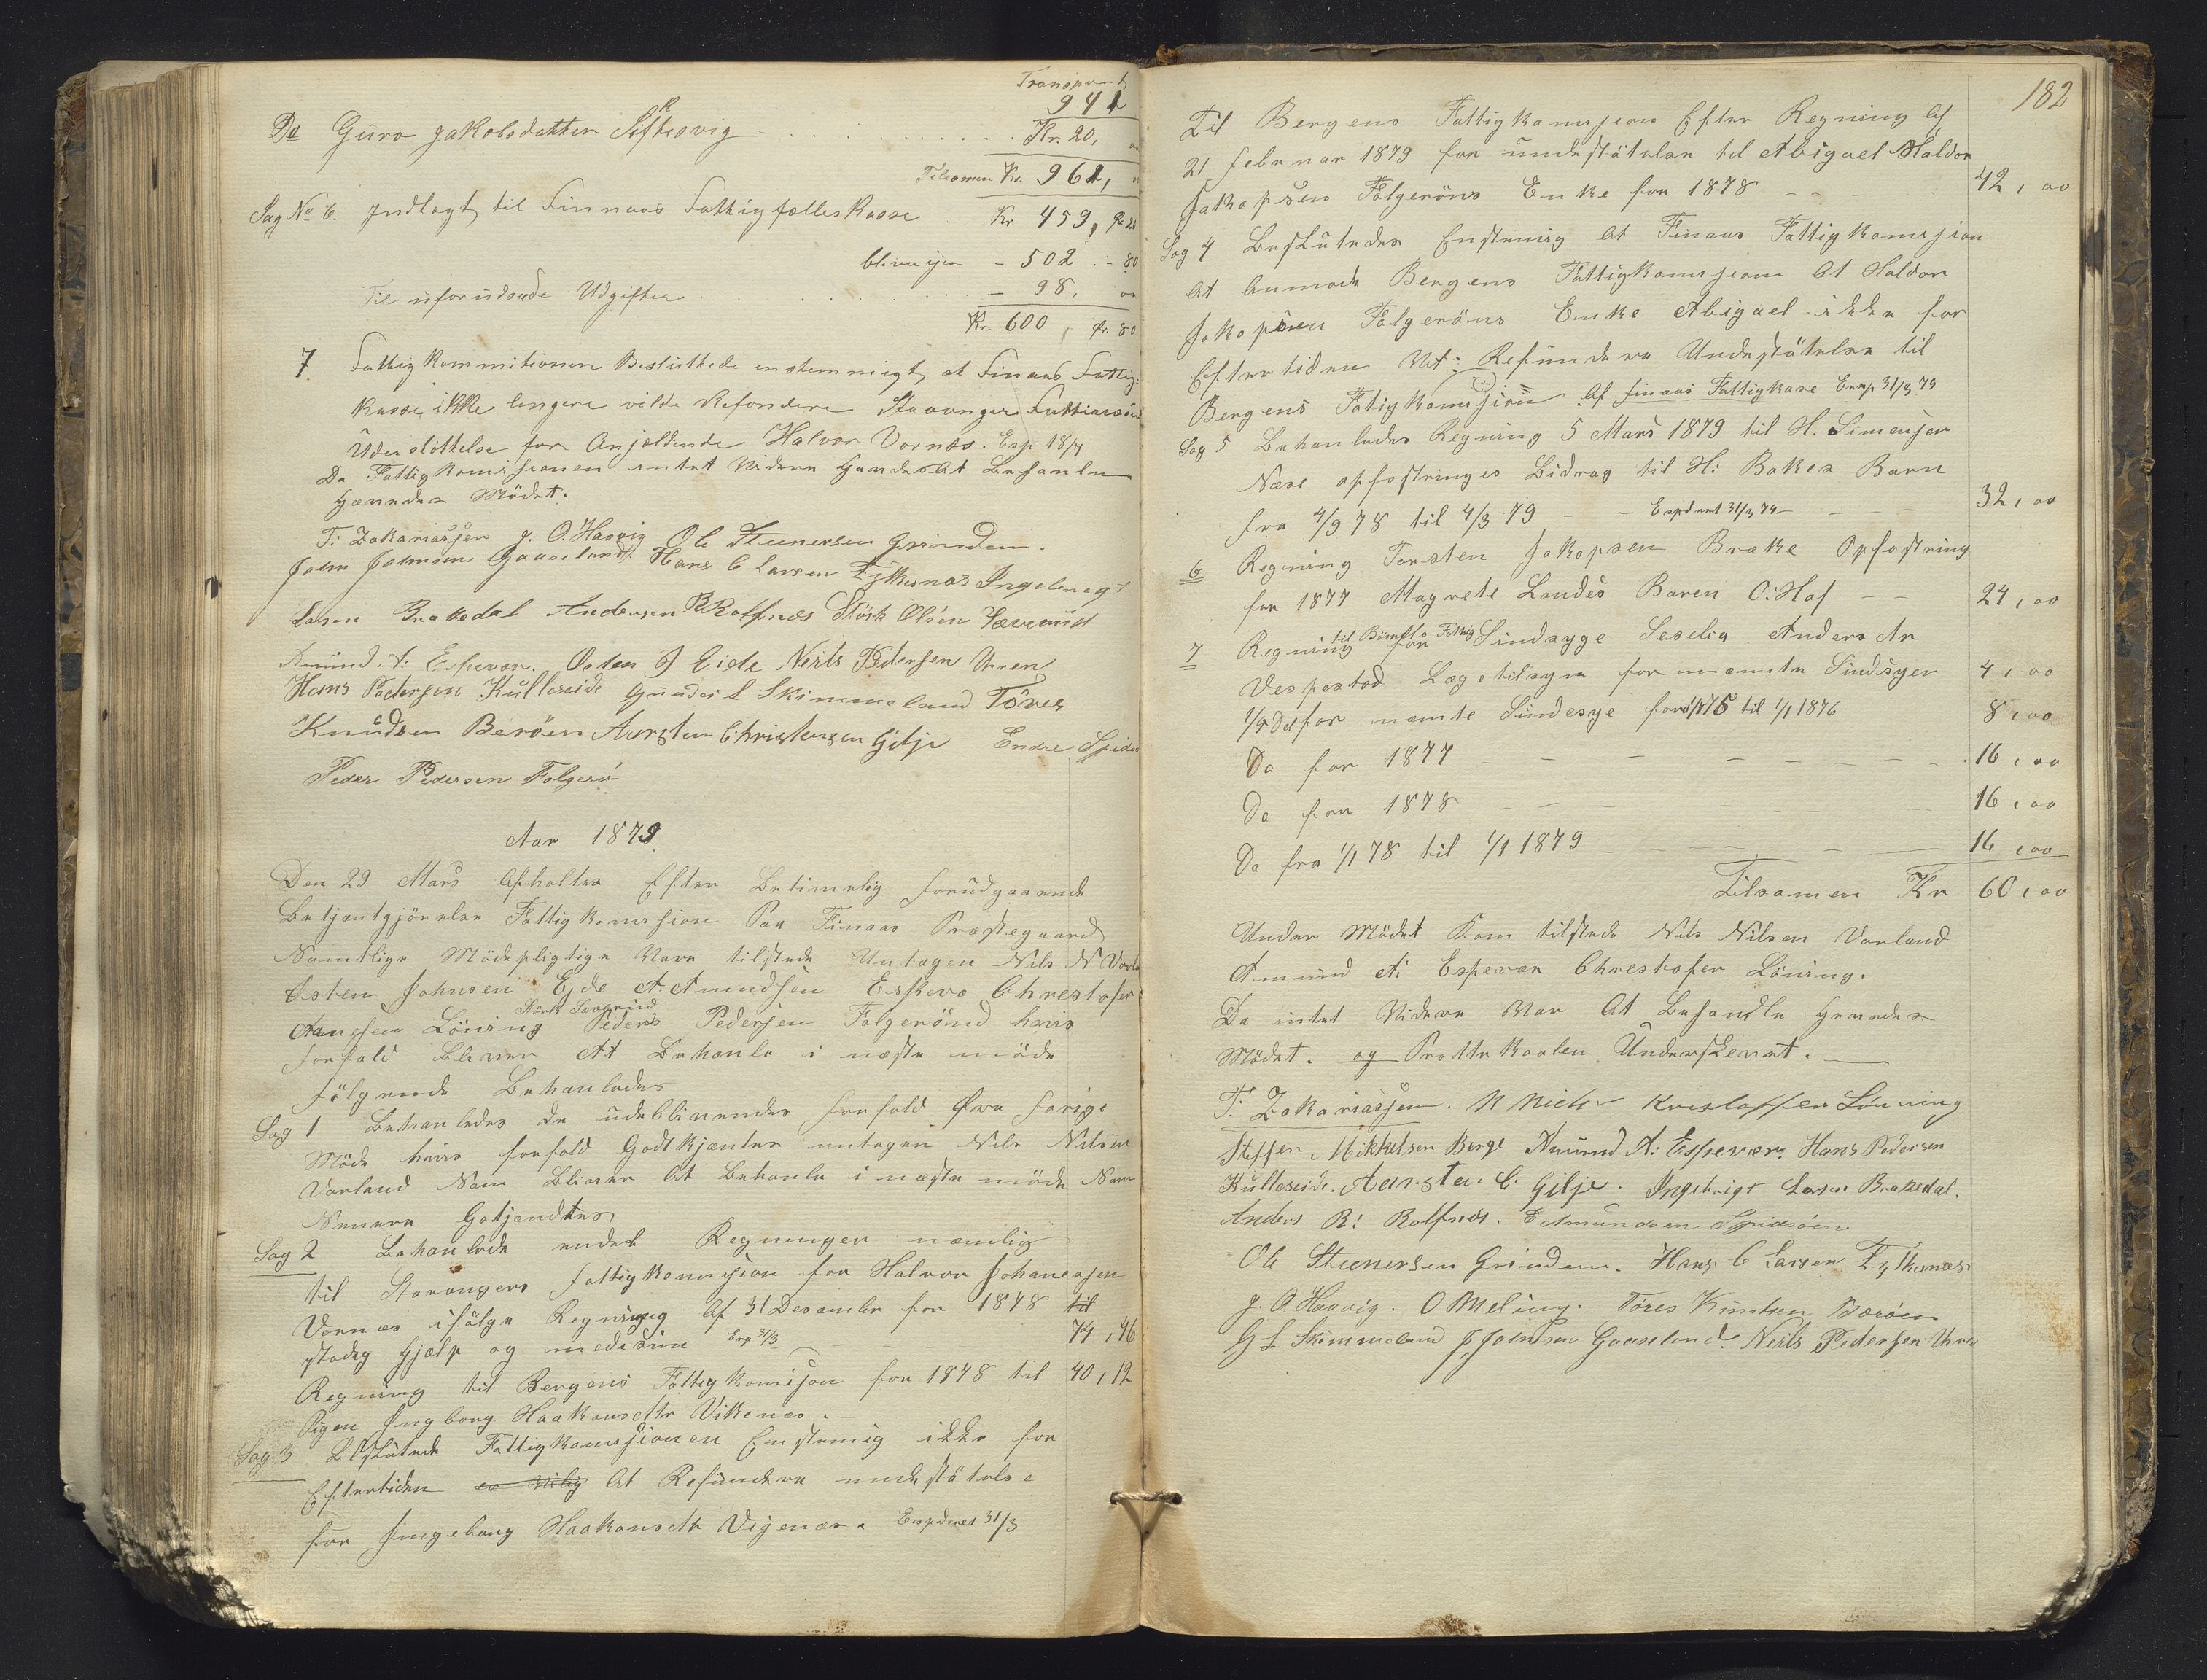 Transport
941
Do Guro Jakobsdatter Siftesvig . . . . . . . . . . . Kr. 20,
Tilsamen Kr. 961,
Sag No 6. Indlagt til Finnaas Fattigfælleskasse Kr. 459,
blive igen - 502 . - 80
Til uforudsede Udgifter . . . . . . . - 98,
Kr. 600, Ør. 80
7 Fattigkommitionen Besluttede enstemmigt at Finaas Fattig-
kasse, ikke lengere vilde Refondere Stavanger
Understöttelse for Anjældende Halvor Vornæs. Exp 18/4
Da Fattigkomisionen intet Videre Havde At Behanle
Hævedes Mödet.
T: Zakariassen J. O. Haavig Ole Steenersen Grinden.
John Johnsen Gaaseland. Hans C Larsen Ingebrigt
Larsen Brakedal Andersen R Rolfsnes Störk Olsen Sæverud
Amund A: Espevær. Osten J Eide Neils Pedersen Uren
Hans Pedersen Kulleseide Gunder L Skimmeland Töres
Knudsen Beröen Aursten Christensen Gilje Endre
Peder Pedersen Folgerö
Aar 1879
Den 29 Mars Afholtes Efter Betimelig forudgaaende
Bekjentgjörelse Fattigkomision Paa Finaas Præstegaard
Samtlige Mödepligtige Vare tilstede Untagen Nils N
Osten Johnsen Ejde A. Amudsen Espeva Chrestofer
Störk Sæverud
Löning Peders Pedersen Folgerönd hvis
forfald Bliver At Behanle i næste möde
fölgende Behanledes
Sag 1 Behanledes De udeblivendes forfald fra forige
Möde hvis forfald Godtkjentes untagen Nils Nilsen
Vorland Som Bliver At Behanle i næste möde Som
Senere Gotjendtes
Sag 2 Behanlede endel Regninger nemlig
til Stavangers Fattigkommision for Halvor Johanesen
Vornæs ifölge Regning Af 31 Desember for 1878 til
stadig hjælp og medesin Exp 31/3 - 74,46
Regning til Bergens Fattigkomisjon for 1878 til 40,12
Pigen Ingborg Haakonsdtr Vikenes.
Sag 3 Beslutede Fattigkomisionen Enstemig ikke for
Eftertiden er vilig At Refundere understötelse
for Ingeborg Haakonsdtr Vigenæs. Expderet 31/3
182
Til Bergens Fattigkomision Efter Regning Af
21 Februar 1879 for understötelse til Abigael Haldor
Jakopsen Folgeröns Enke for 1878 - - 42,00
Sag 4 Beslutedes Enstemig At Finaas Fattigkomision
At Anmode Bergens Fattigkomision At Haldor
Jakopsen Folgeröns Enke Abigael ikke for
Eftertiden Refundere Understötelse til
Bergens Fatigkomision Af Finaas Fattigkase Exp. 31/3 79
Sag 5 Behanledes Regning 5 Mars 1879 til H. Simensen
Næse opfostringes Bidrag til H: Bakes Barn
fra 4/9 78 til 4/3 79 - - Expdert 31/3 79 - - - 32,00
6 Regning Torsten Jakopsen Brake Opfostring
for 1877 Magrete Landes Baren O: Haf - - 24,00
7 Regning til Bömlo Fattig for Sindsyge Seselia Anders dr
Vespestad Lægetilsyn for nævnte Sindsyer 4,00
1/4 Del for nemte Sindesye for til 1/1 1876 8,00
Do for 1877 - - - - - - - 16,00
Do for 1878 - - - - - - - 16,00
Do fra 1/1 78 til 1/1 1879 - - - - 16,00
Tilsamen Kr 60,00
Under Mödet Kom tilstede Nils Nilsen Vorland
Amund A: Espevær Chrestofer Löning.
Da intet Videre Var At Behandle Hevedes
Mödet. og Prottekaalen Underskrevet.
T: Zakariassen. N Niels Kristoffer Lönning
Steffen Mikkelsen Berge Amund A: Espevær. Hans Pedersen
Kulleseide. Aarsten C. Gilje. Ingebrigt Larsen Brakedal.
Anders R: Rolfsnes. E Amundsen Spidsöen
Ole Steenersen Grinden. Hans C Larsen
J. O. Haavig. O Meling. Töres Knutsen Beröen
G L Skimmeland J Johnsen Gaaseland. Neils Pedersen Uren